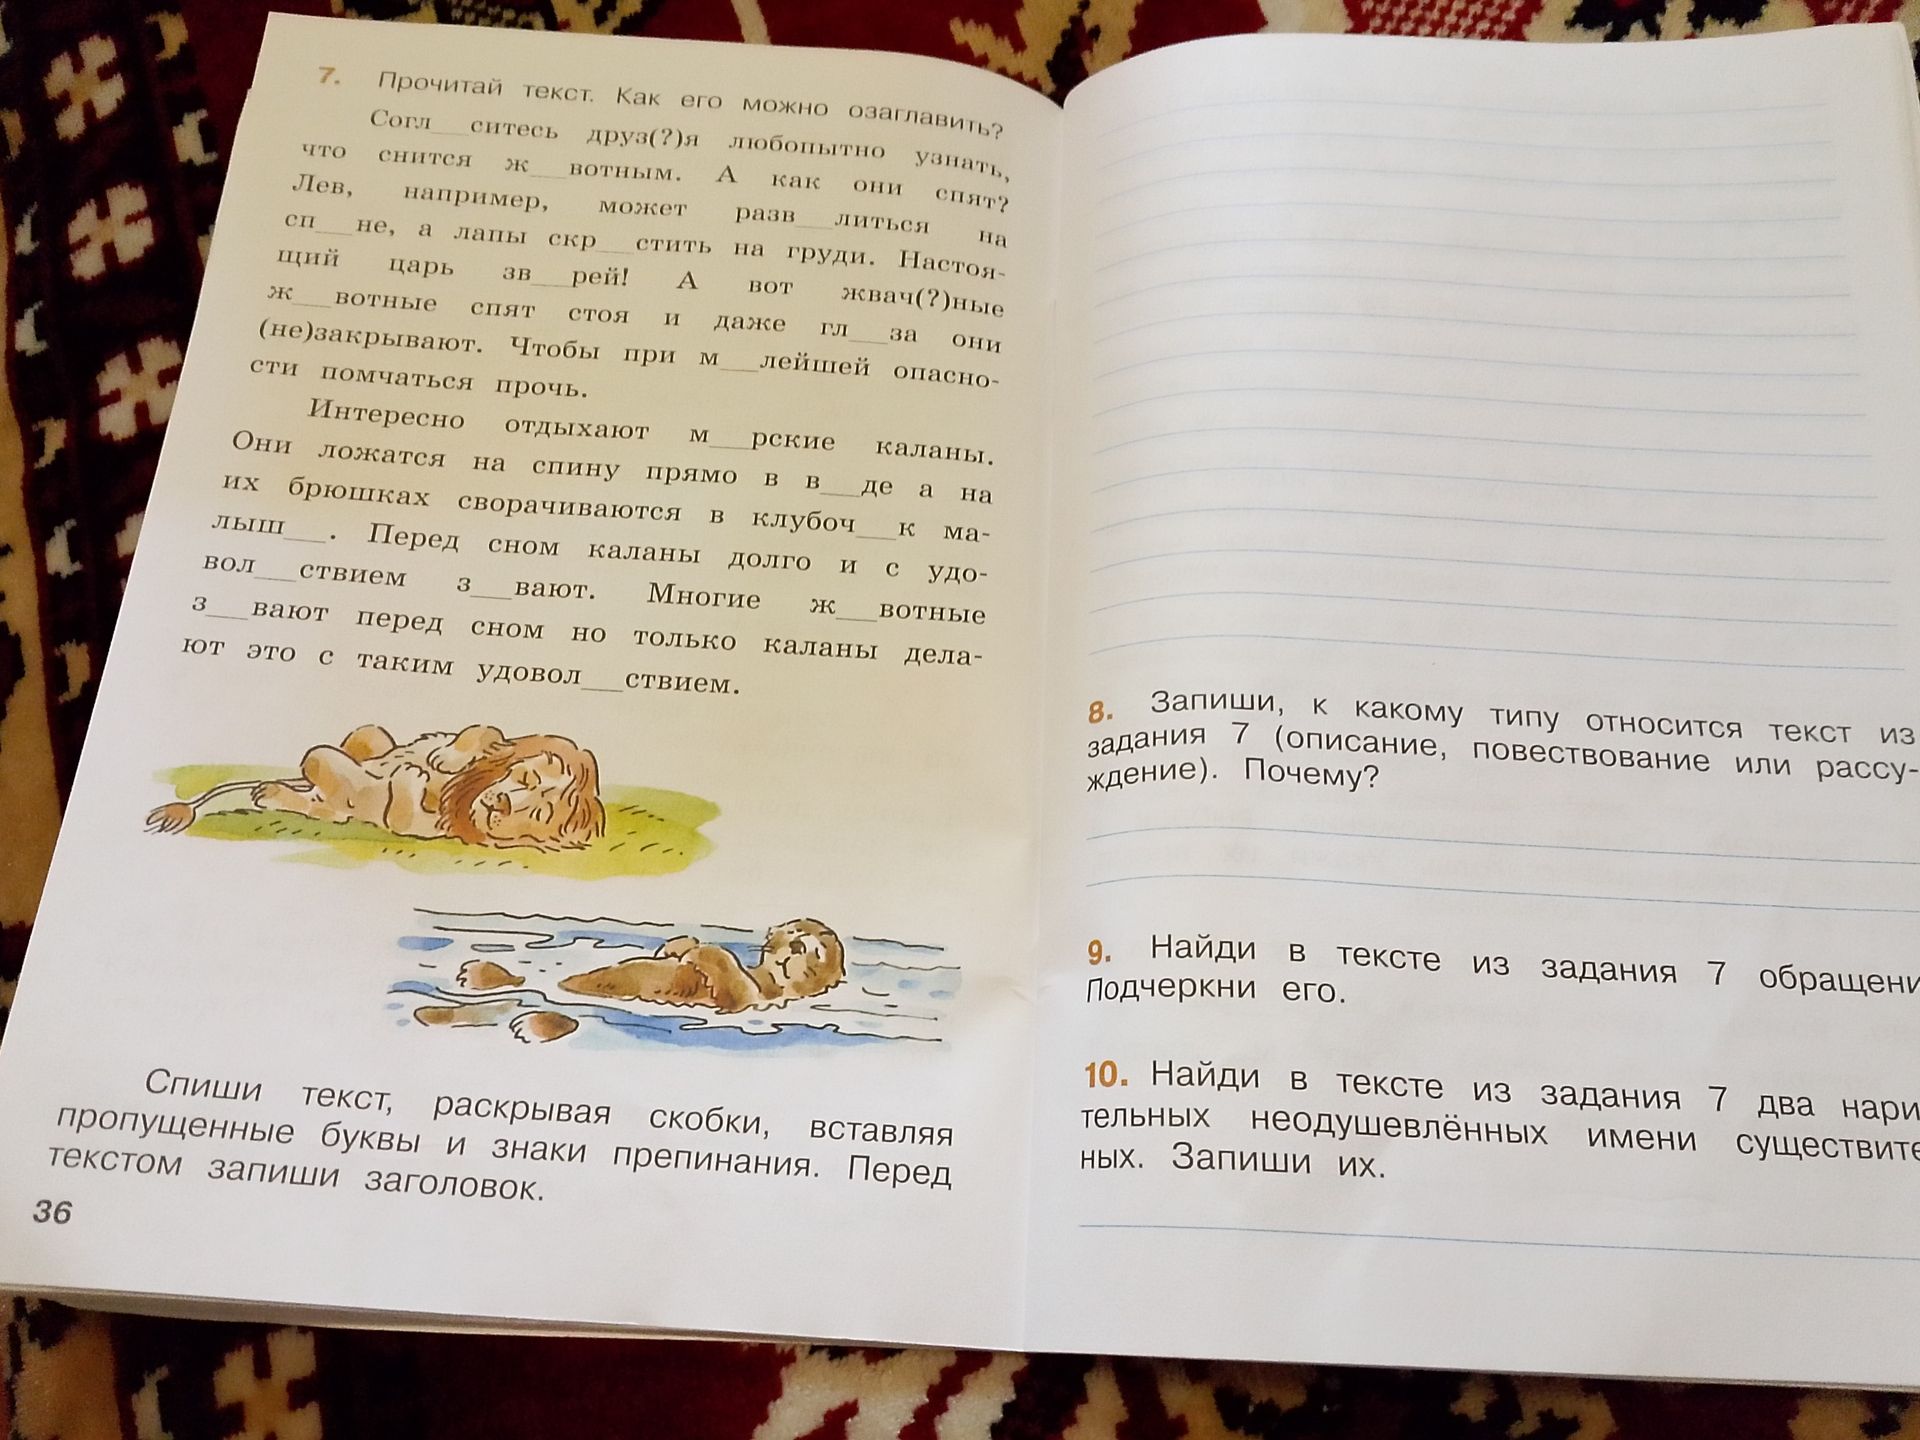 7. Прочитай текст. Как его можно озаглавить?
Согл__ситесь друз(?)я любопытно узнать,
что снится ж__вотным. А как они спят?
Лев, например, может разв__литься на
сп__не, а лапы скр__стить на груди. Настоя-
щий царь зв__рей! А вот жвач(?)ные
ж__вотные спят стоя и даже гл__за они
(не)закрывают. Чтобы при м__лейшей опасно-
сти помчаться прочь.
Интересно отдыхают м__рские каланы.
Они ложатся на спину прямо в в__де а на
их брюшках сворачиваются в клубоч__к ма-
лыш__. Перед сном каланы долго и с удо-
вол__ствием з__вают. Многие ж__вотные
з__вают перед сном но только каланы дела-
ют это с таким удовол__ствием.
Спиши текст, раскрывая скобки, вставляя
пропущенные буквы и знаки препинания. Перед
текстом запиши заголовок.
36
8. Запиши, к какому типу относится текст из
задания 7 (описание, повествование или рассу-
ждение). Почему?
9. Найди в тексте из задания 7 обращени
Подчеркни его.
10. Найди в тексте из задания 7 два нари
тельных неодушевлённых имени существите
ных. Запиши их.